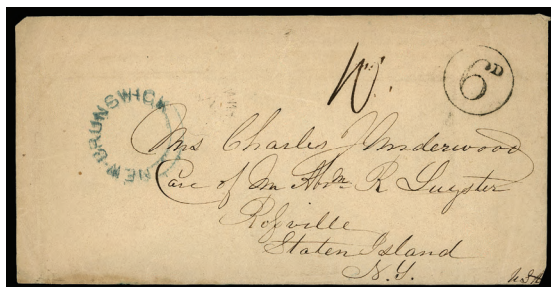 10.
6D
NEW-BRUNSWICK
Mrs Charles J Underwood
Care of Mr Abm R Luyster
Roſsville
Staten Island
N.Y.